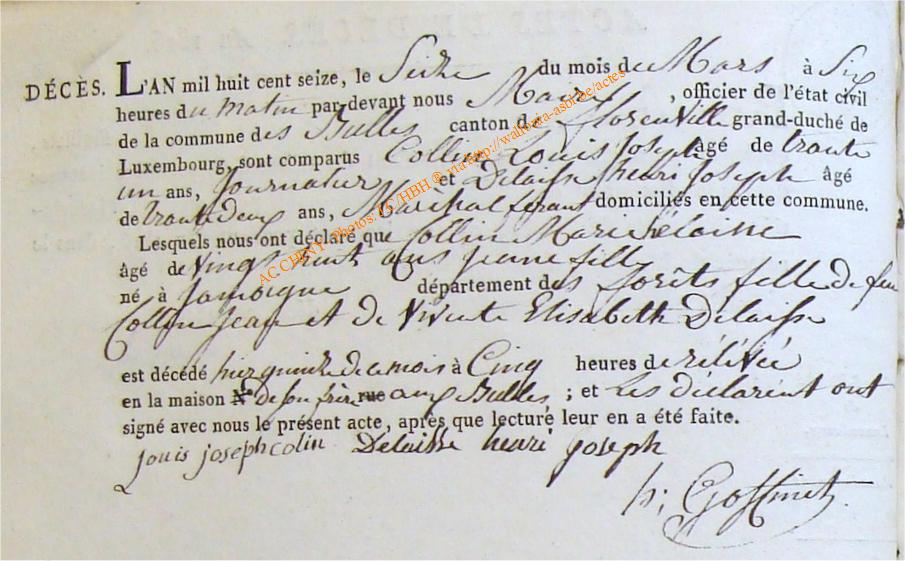 DÉCÈS. L'AN mil huit cent seize, le Seize du mois de Mars à Six
heures du matin par-devant nous Maire, officier de l'état civil
de la commune des Bulles canton de florenville grand-duché de
Luxembourg, sont comparus Collin Louis Joseph âgé de trente
un ans, Journalier et Delaisse henri Joseph âgé
de trente deux ans, Marchal ferant domiciliés en cette commune.
Lesquels nous ont déclaré que Collin Marie
âgé de Vingt huit ans jeune fille
né à Jamoigne département des forêts fille de feu
Collin Jean et de Vivente Elisabeth Delaisse
est décédé hier quinze de ce mois à Cinq heures de rélévée
en la maison N.º de son frère rue aux Bulles ; et Les déclarent ont
signé avec nous le présent acte, après que lecture leur en a été faite.
Louis joseph colin Delaisse henri joseph
h; Goffinet
AC CHINY Photos: LS/HBH ® via http://wallonia-asbl.be/actes